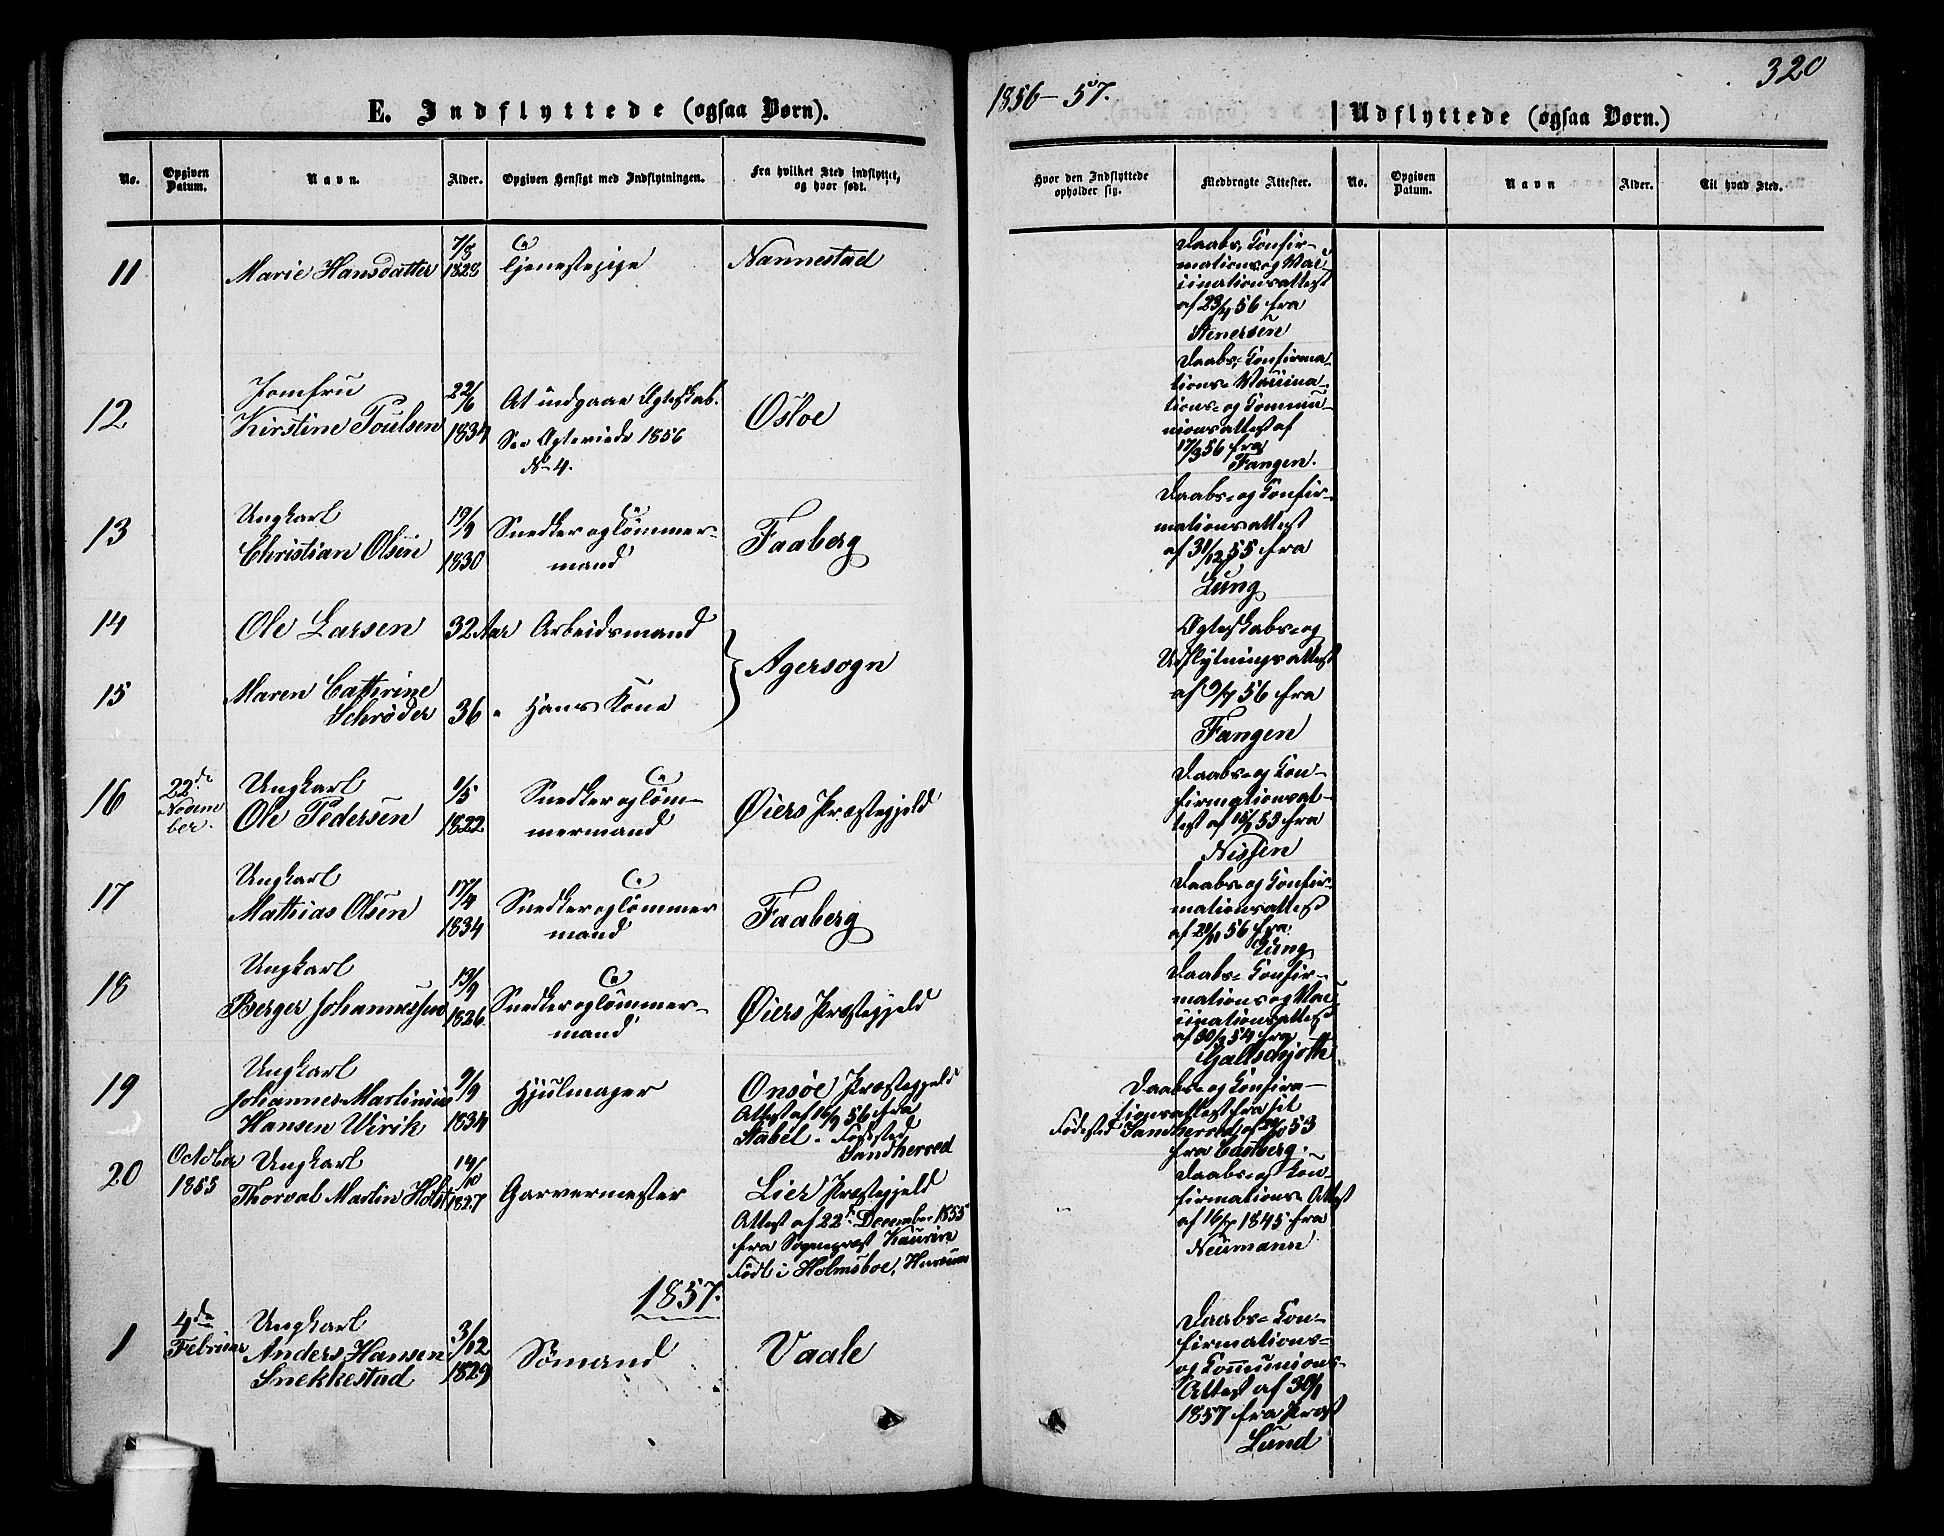 320
1856-57.
E. Indflyttede (ogsaa Børn).
Udflyttede (ogsaa Børn.)
No. Opgiven Datum. Navn. Alder. Opgiven Hensigt med Indflytningen. Fra hvilket Sted indflyttet, og hvor født. Hvor den Indflyttede opholder sig. Medbragte Attester. No. Opgiven Datum. Navn Alder. Til hvad Sted.
11 Marie Hansdatter 7/8 1828 Tjenestepige Nannestad
Daabs, Confir-
mations og Vac-
cinationsattest
af 23/4 56 fra
Stenersen
12 Jomfru
Kirstine Poulsen 22/6 1834
At indgaae Ægteskab.
See Ægteviede 1856
No 4.
Osloe
Daabs, Confirma-
tions- Vaccina-
tions- og Commu-
nionsattest af
17/3 56 fra
Fangen.
13 Ungkarl
Christian Olsen 19/9 1830
Snedker og Tömmer-
mand
Faaberg
Daabs- og Confir-
mationsattest
af 31/12 55 fra
Lung
14 Ole Larsen 32 Aar Arbeidsmand
15 Maren Cathrine
Schrøder 36 " Hans Kone
Agersogn
Ægteskabs- og
Udflytningsattest
af 9/7 56 fra
Fangen
16 22de
Novem
ber.
Ungkarl
Ole Pedersen 1/5 1822
Snedker og Töm-
mermand
Øiers Præstegjeld
Daabs- og Con-
firmationsat-
test af 15/9 53 fra
Nissen
17 Ungkarl
Mathias Olsen 17/4 1834
Snedker og Tömmer
mand
Faaberg
Daabs- og Confir-
mationsattest
56 fra
Lung
18 Ungkarl
Berger Johannessen 13/9 1826
Snedker og Tömmer-
mand
Øiers Præstegjeld
Daabs- Confir-
mations og Vac-
cinationsattest
54 fra
19 Ungkarl
Johannes Martinius
Hansen Wirik 9/9 1834
Hjulmager
Onsøe Præstegjeld
Attest af 16/9 56 fra
Stabel. Fødested
Sandherred
Daabs- og Confirma-
tionsattest fra sit
Fødested Sandherred, af 53
fra Castberg.
20 October
1855
Ungkarl
Thorval Martin Holst 14/10 1827
Garvermester
Lier Præstegjeld
Attest af 22de December 1855
fra Sognepræst Kaurin
Født i Holmsboe, Hurum
Daabs- og Con-
firmations- Attest
af 16/7 1845 fra
Neumann
1857.
1 4de
Februar
Ungkarl
Anders Hansen
Snekkestad 3/12 1829
Sømand
Vaale
Daabs- Con-
firmations-
og Communions-
Attest af 30/1
1857 fra Præst
Lund